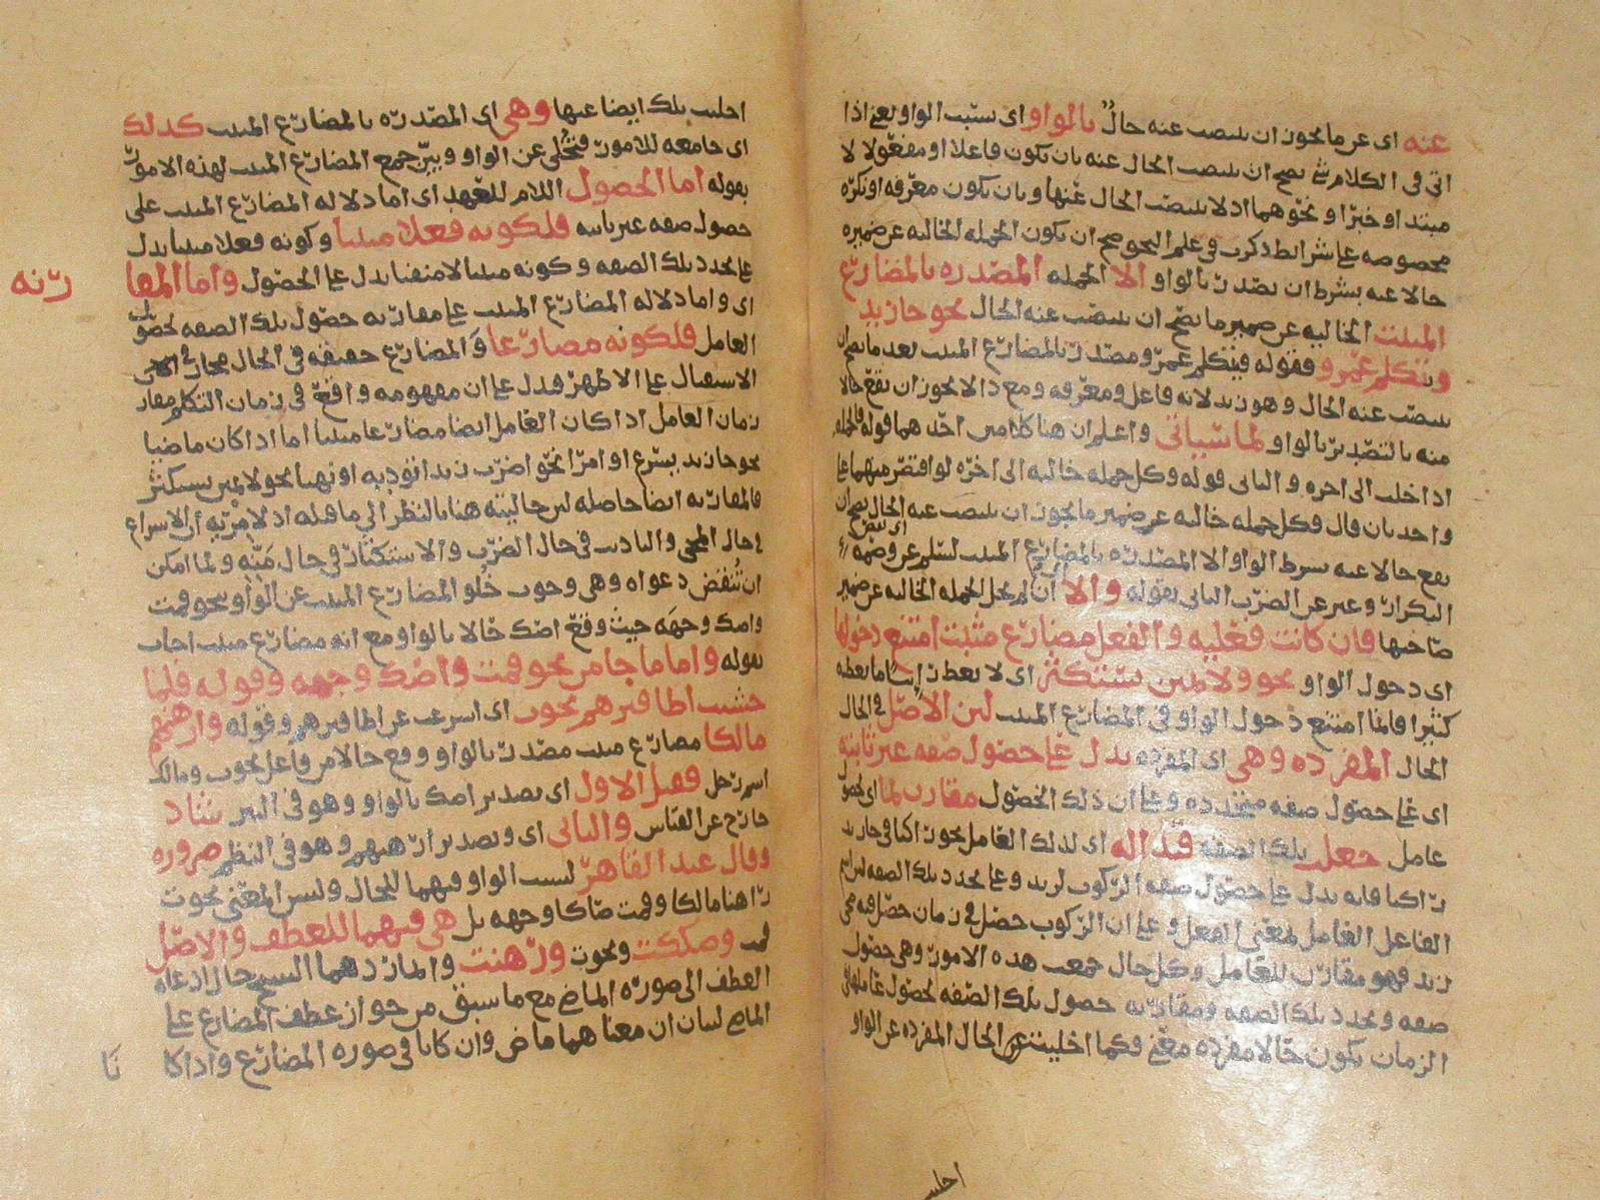 عنه اي عن ما يجوز ان ينتصب عنه حال بالواو اي بسبب الواو يعني اذا
اتى في الكلام شيء يصح ان ينتصب الحال عنه بان يكون فاعلا او مفعولا لا
مبتدا او خبرا ونحوهما اذ لا ينتصب الحال عنها وبان يكون معرفه او نكره
مخصوصه على شرايط ذكرت في علم النحو صح ان يكون الجمله الخاليه عن ضميره
حالا عنه بشرط ان تصدر بالواو الا الجمله المصدره بالمضارع
المثبت الخاليه عن ضمير ما يصح ان ينتصب عنه الحال نحو جا زيد
ويتكلم عمرو فقوله ويتكلم عمرو مصدر بالمضارع المثبت بعد ما يصح ان
ينتصب عنه الحال وهو زيد لانه فاعل ومعرفه ومع ذا لا يجوز ان يقع حالا
منه بالتصدير بالواو لما سياتي واعلم ان هنا كلامين احدهما قوله فالجمله
ان خلت الى اخره والثاني قوله وكل جمله خاليه الى اخره لو اقتصر منهما على
واحد بان قال فكل جمله خاليه عن ضمير ما يجوز ان ينتصب عنه الحال يصح ان
يقع حالا عنه بشرط الواو الا المصدره بالمضارع المثبت لسلم عن وصمه
التكرار وعبر عن الضرب الثاني بقوله والا اي ان لم تخل الجمله الخاليه عن ضمير
صاحبها فان كانت فعليه والفعل مضارع مثبت امتنع دخولها
اي دخول الواو نحو ولا تمنن تستكثر اي لا تعط رائيا ما تعطه
كثيرا فانما امتنع دخول الواو في المضارع المثبت لان الاصل في الحال
الحال المفرده وهي اي المفرده تدل على حصول صفه غير ثابته
اي على حصول صفه متجدده وعلى ان ذلك الحصول مقارن لما اي لحصول
عامل جعلت تلك الصفه قيدا له اي لذلك العامل نحو راكبا في جا زيد
راكبا فانه يدل على حصول صفه الركوب لزيد وعلى تجدد تلك الصفه
الفاعل العامل لمعنى الفعل وعلى ان الركوب حصل في زمان حصل فيه مجي
زيد فهو مقارن للعامل وكل حال جمعت هذه الامور وهي حصول
صفه وتجدد تلك الصفه ومقارنه حصول تلك الصفه لحصول عاملها في
الزمان يكون حالا مفرده معنى فكما اخليت عن الحال المفرده عن الواو
اخليت
اخليت تلك ايضا عنها وهي اي المصدره بالمضارع المثبت كذلك
اي جامعه للامور فتخلى عن الواو وبين جمع المضارع المثبت لهذه الامور
بقوله اما الحصول اللام للعهد اي اما دلاله المضارع المثبت على
حصول صفه غير ثابته فلكونه فعلا مثبتا وكونه فعلا مثبتا يدل
على تجدد تلك الصفه وكونه مثبتا لا منفيا يدل على الحصول واما المقا
رنه
اي واما دلاله المضارع المثبت على مقارنه حصول تلك الصفه لحصول
العامل فلكونه مضارعا والمضارع حقيقه في الحال مجاز في
الاستقبال على الاظهر فدل على ان مفهومه واقع في زمان التكلم مقارن
زمان العامل اذا كان العامل ايضا مضارعا مثبتا اما اذا كان ماضيا
نحو جا زيد يسرع او امرا نحو اضرب زيدا تؤدبه او نهيا نحو لا تمنن تستكثر
فالمقارنه ايضا حاصله لان حاليته هنا بالنظر الى ما قبله اذ لا مريه ان الاسراع
في حال المجي والتاديب في حال الضرب والاستكثار في حال منه ولما امكن
ان تنقض دعواه وهي وجوب خلو المضارع المثبت عن الواو بنحو قمت
واصك وجهه حيث وقع اصك حالا بالواو مع انه مضارع مثبت اجاب
بقوله واما ما جا من نحو قمت واصك وجهه وقوله فلما
خشيت اظافيرهم نجوت اي اسرعت عن اظافيرهم وقوله وارهنهم
مالكا مضارع مثبت مصدر بالواو ووقع حالا من فاعل نجوت ومالك
اسم رجل فقيل الاول اي تصدير اصك بالواو وهو في النثر شاذ
خارج عن القياس والثاني اي وتصدير ارهنهم وهو في النظم ضروره
وقال عبد القاهر ليست الواو فيهما للحال وليس المعنى نجوت
راهنا مالكا وقمت صاكا وجهه بل هي فيهما للعطف والاصل
قمت وصككت ونجوت ورهنت
العطف الى صوره الماضي مع ما سبق من جواز عطف المضارع على
الماضي لبيان ان معناهما ماض وان كانا في صوره المضارع واذا كا
نا